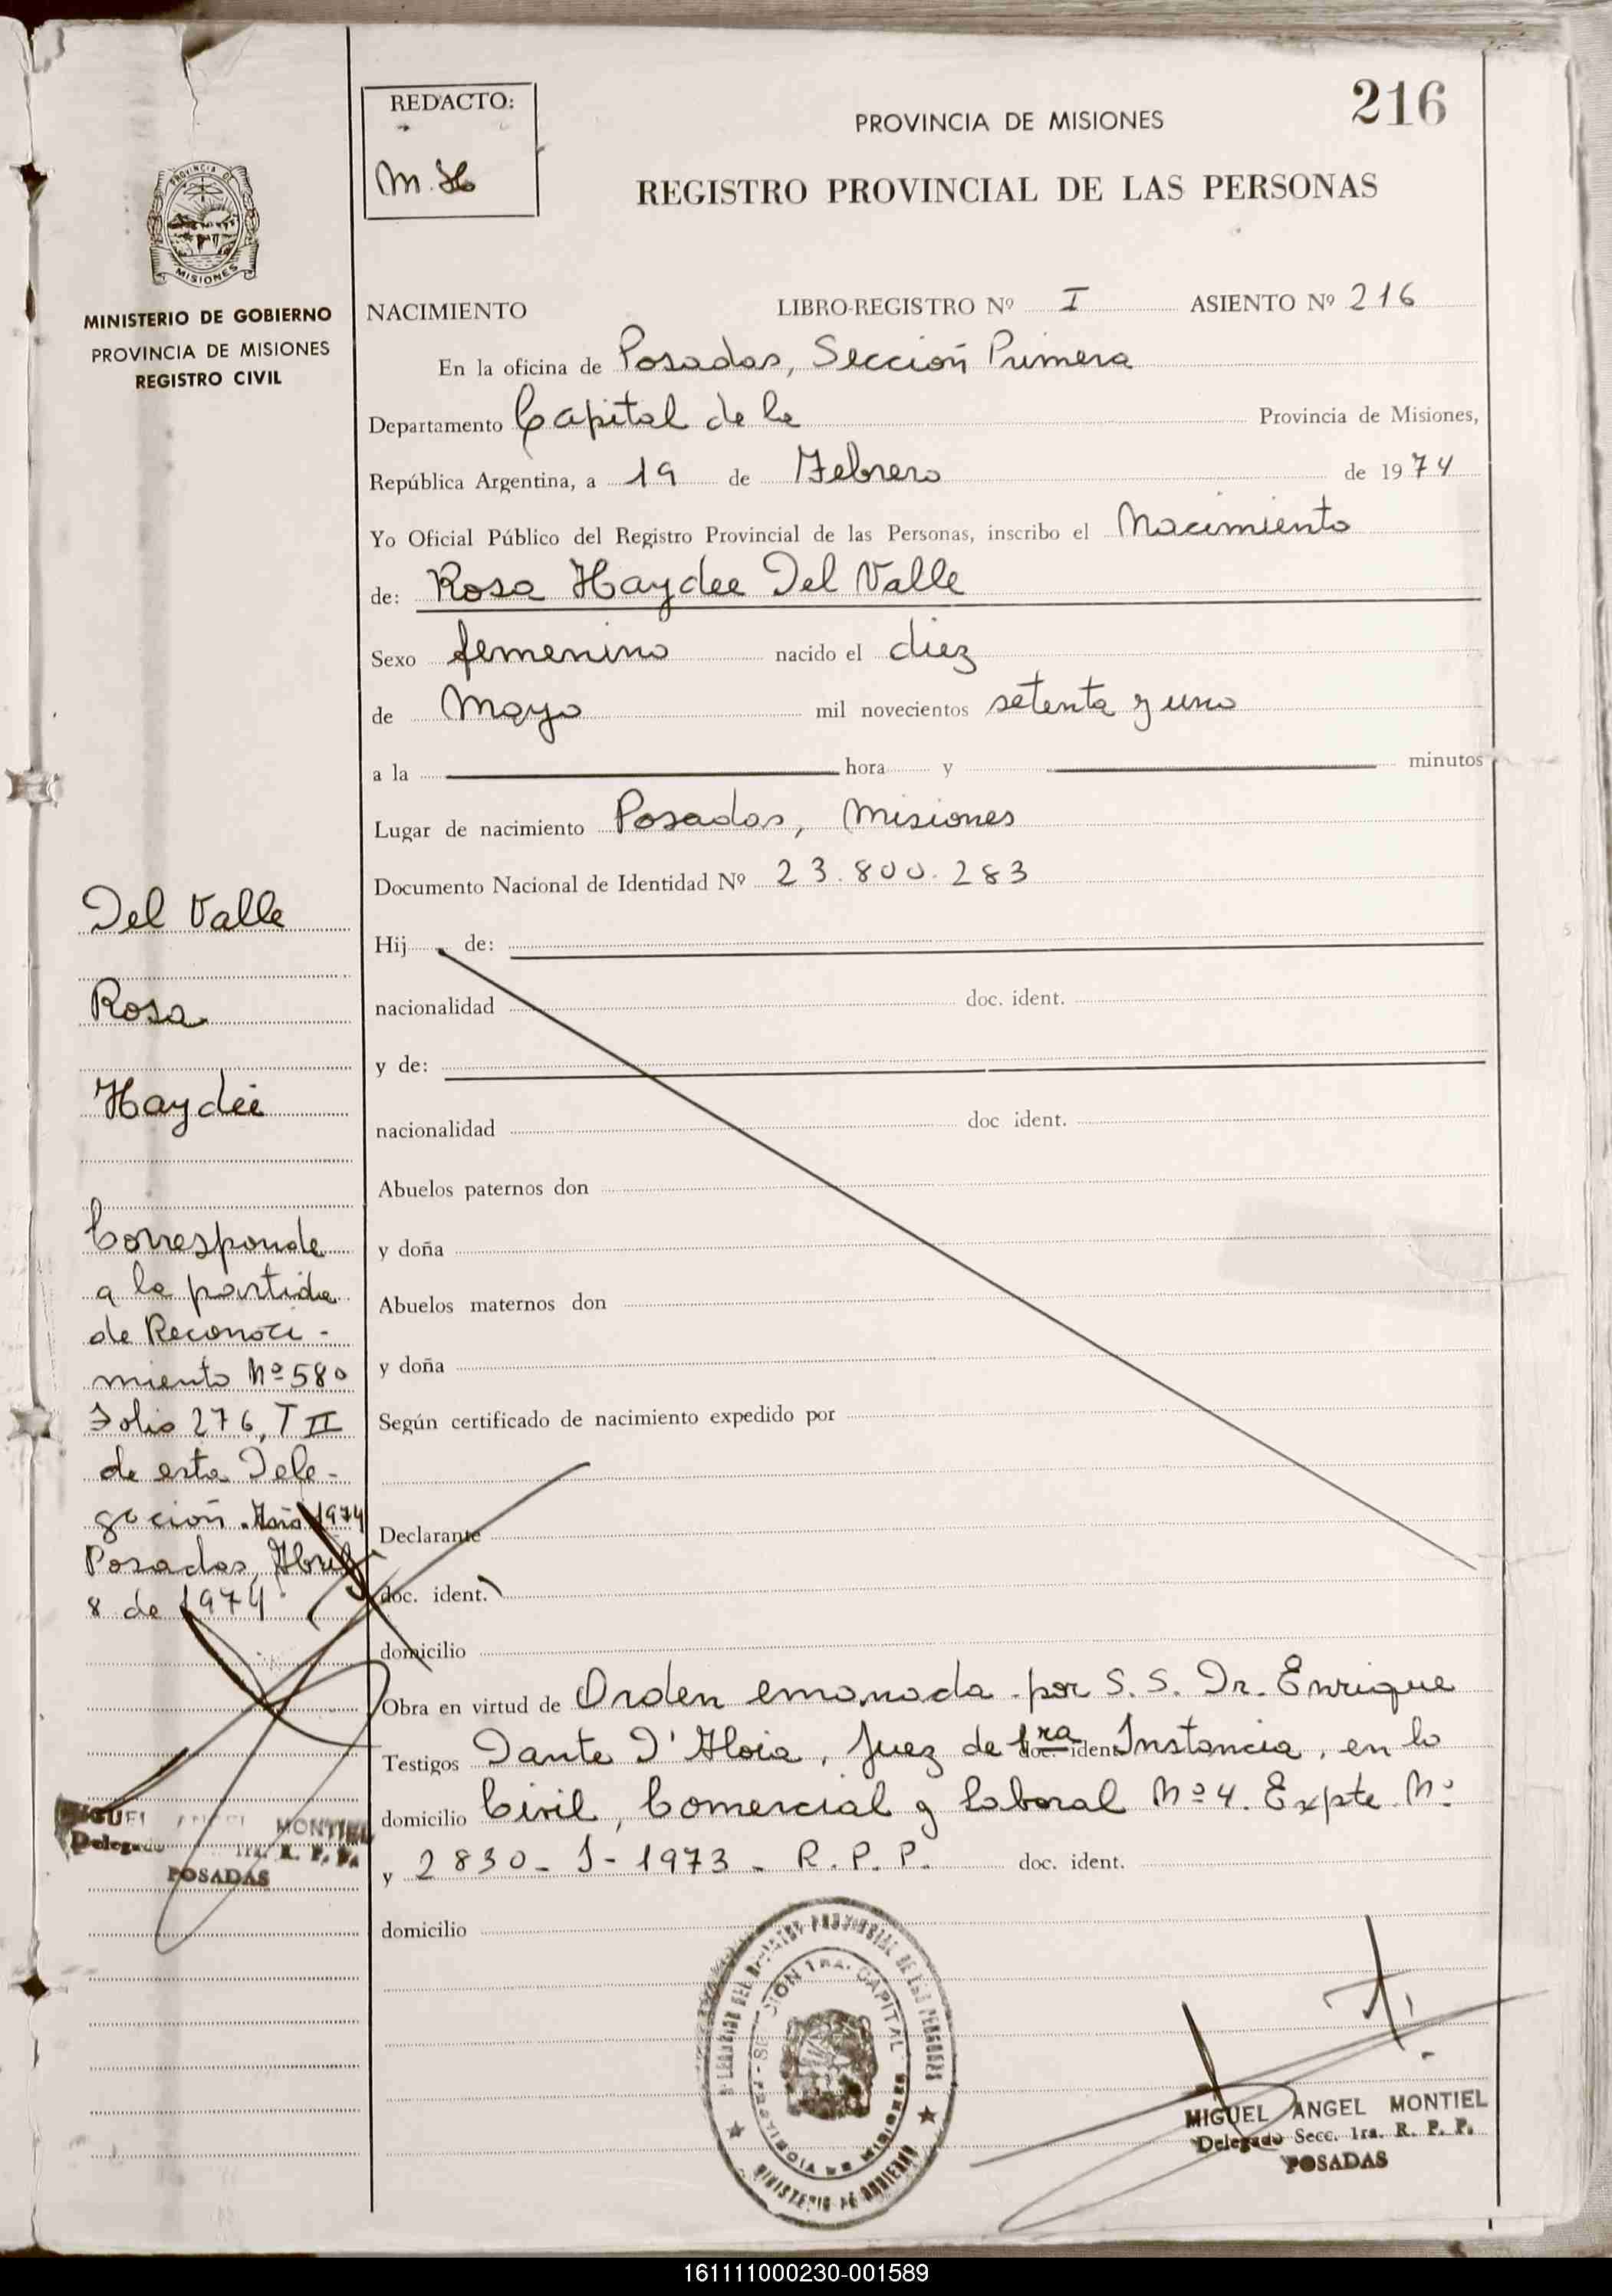 216
REDACTO:
M. H
PROVINCIA DE MISIONES
REGISTRO PROVINCIAL DE LAS PERSONAS
PROVINCIA DE
MISIONES
MINISTERIO DE GOBIERNO
PROVINCIA DE MISIONES
REGISTRO CIVIL
NACIMIENTO LIBRO-REGISTRO Nº I ASIENTO Nº 216
En la oficina de Posadas, Sección Primera
Departamento Capital de la Provincia de Misiones,
República Argentina, a 19 de Febrero de 1974
Yo Oficial Público del Registro Provincial de las Personas, inscribo el Nacimiento
de: Rosa Haydee Del Valle
Sexo femenino nacido el diez
de Mayo mil novecientos setenta y uno
a la hora y minutos
Lugar de nacimiento Posadas, Misiones
Documento Nacional de Identidad Nº 23.800.283
Hij de:
nacionalidad doc. ident.
y de:
nacionalidad doc ident.
Abuelos paternos don
y doña
Abuelos maternos don
y doña
Según certificado de nacimiento expedido por
Declarante
doc. ident.
domicilio
Obra en virtud de Orden emanada por S. S. Dr. Enrique
Testigos Dante D'Aloia, Juez de 1ra doc iden Instancia, en lo
domicilio Civil, Comercial y Laboral Nº 4. Expte Nº
y 2830-J-1973-R.P.P. doc. ident.
domicilio
Del Valle
Rosa
Haydée
Corresponde
a la partida
de Reconoci-
miento Nº 580
Folio 276, T II
de esta Dele-
gación. Año 1974
Posadas, Abril
8 de 1974
MIGUEL ANGEL MONTIEL
Delegado 1ra. R. P. P.
POSADAS
DELEGACION DEL REGISTRO PROVINCIAL DE LAS PERSONAS
SECCION 1RA. CAPITAL
PROVINCIA DE MISIONES
MINISTERIO DE GOBIERNO
MIGUEL ANGEL MONTIEL
Delegado Secc. 1ra. R. P. P.
POSADAS
161111000230-001589